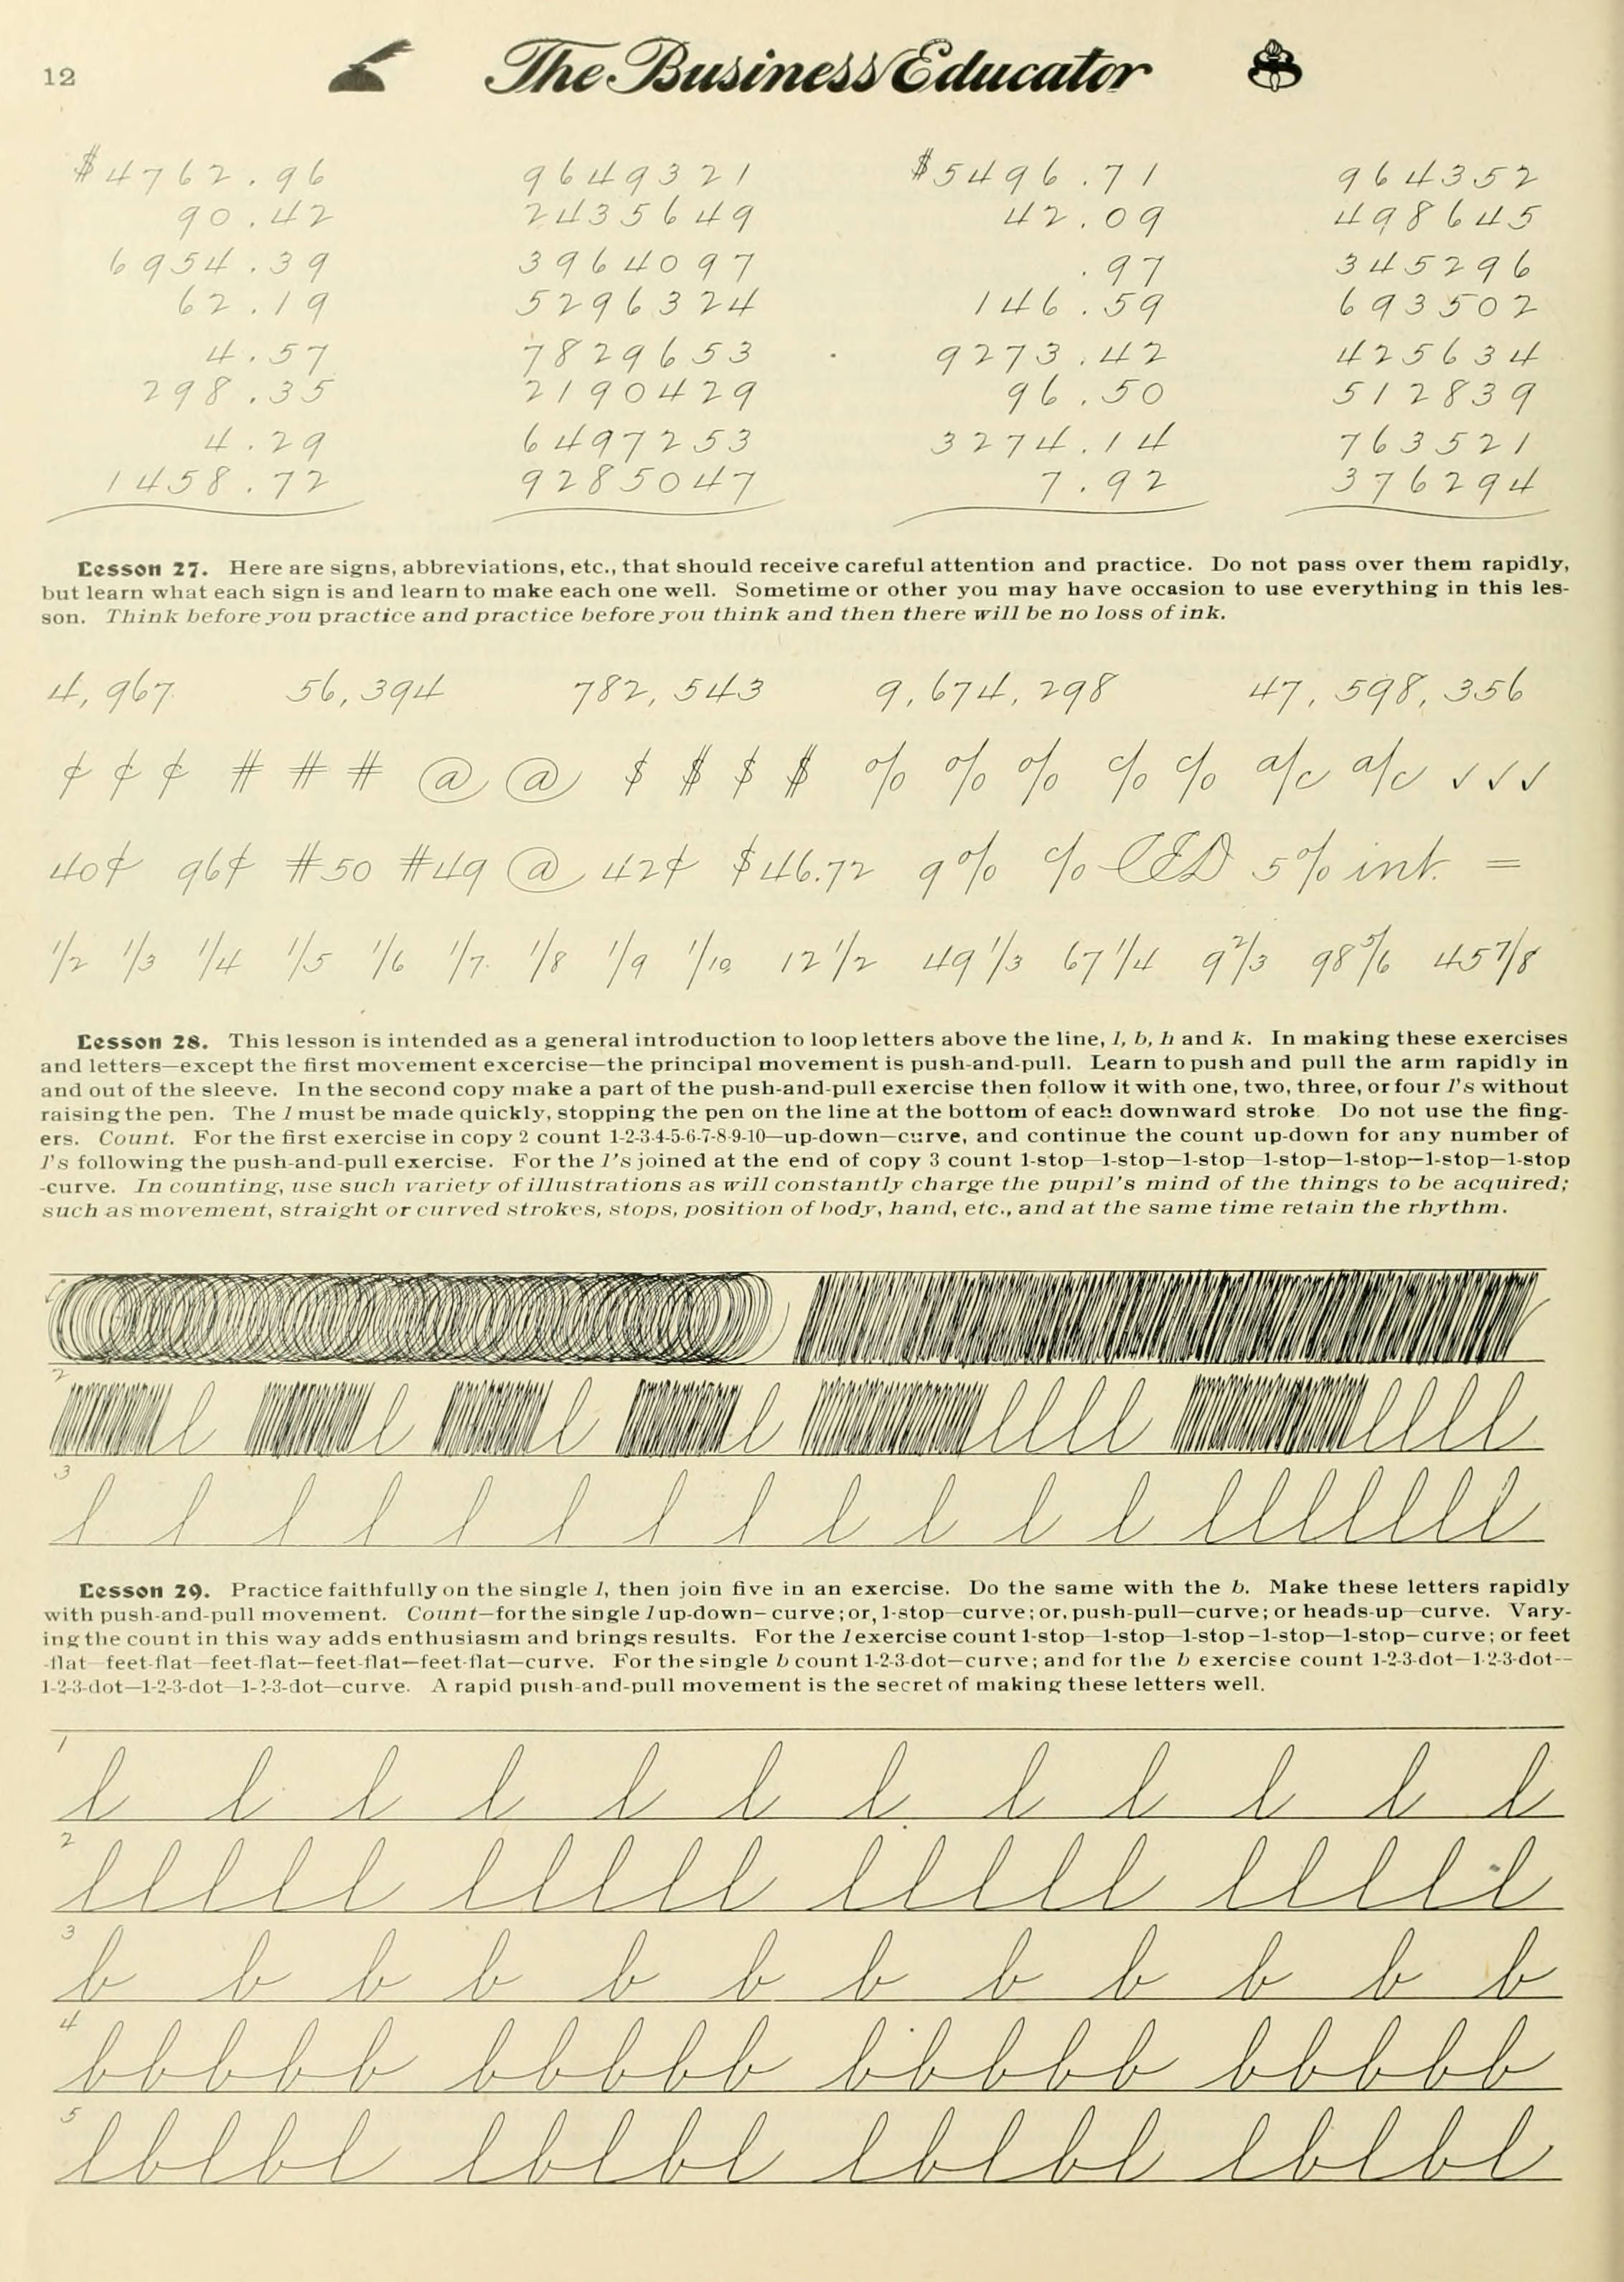 12
The Business Educator
$4762.96 9649321 $5496.71 964352
90.42 2435649 42.09 498645
6954.39 3964097 .97 345296
62.19 5296324 146.59 693502
4.57 7829653 9273.42 425634
298.35 2190429 96.50 512839
4.29 6497253 3274.14 763521
1458.72 9285047 7.92 376294
Lesson 27. Here are signs, abbreviations, etc., that should receive careful attention and practice. Do not pass over them rapidly,
but learn what each sign is and learn to make each one well. Sometime or other you may have occasion to use everything in this les-
son. Think before you practice and practice before you think and then there will be no loss of ink.
4,967 56,394 782,543 9,674,298 47,598,356
¢ ¢ ¢ # # # @ @ $ $ $ $ % % % c/o c/o a/c a/c ✓ ✓ ✓
40¢ 96¢ #50 #49 @ 42¢ $46.72 9% c/o 5% int. =
1/2 1/3 1/4 1/5 1/6 1/7 1/8 1/9 1/10 12 1/2 49 1/3 67 1/4 9 2/3 98 5/6 45 7/8
Lesson 28. This lesson is intended as a general introduction to loop letters above the line, l, b, h and k. In making these exercises
and letters—except the first movement excercise—the principal movement is push-and-pull. Learn to push and pull the arm rapidly in
and out of the sleeve. In the second copy make a part of the push-and-pull exercise then follow it with one, two, three, or four l's without
raising the pen. The l must be made quickly, stopping the pen on the line at the bottom of each downward stroke Do not use the fing-
ers. Count. For the first exercise in copy 2 count 1-2-3-4-5-6-7-8-9-10—up-down—curve, and continue the count up-down for any number of
l's following the push-and-pull exercise. For the l's joined at the end of copy 3 count 1-stop—1-stop—1-stop—1-stop—1-stop—1-stop—1-stop
-curve. In counting, use such variety of illustrations as will constantly charge the pupil's mind of the things to be acquired;
such as movement, straight or curved strokes, stops, position of body, hand, etc., and at the same time retain the rhythm.
2
l l l l llll llll
3
l l l l l l l l l l l l lllllll
Lesson 29. Practice faithfully on the single l, then join five in an exercise. Do the same with the b. Make these letters rapidly
with push-and-pull movement. Count—for the single l up-down—curve; or, 1-stop—curve; or, push-pull—curve; or heads-up—curve. Vary-
ing the count in this way adds enthusiasm and brings results. For the l exercise count 1-stop—1-stop—1-stop—1-stop—1-stop—curve; or feet
-flat—feet-flat—feet-flat—feet-flat—feet-flat—curve. For the single b count 1-2-3-dot—curve; and for the b exercise count 1-2-3-dot—1-2-3-dot--
1-2-3-dot—1-2-3-dot—1-2-3-dot—curve. A rapid push-and-pull movement is the secret of making these letters well.
1
l l l l l l l l l l l l
2
lllll lllll lllll lllll
3
b b b b b b b b b b b b
4
bbbbb bbbbb bbbbb bbbbb
5
lblbl lblbl lblbl lblbl